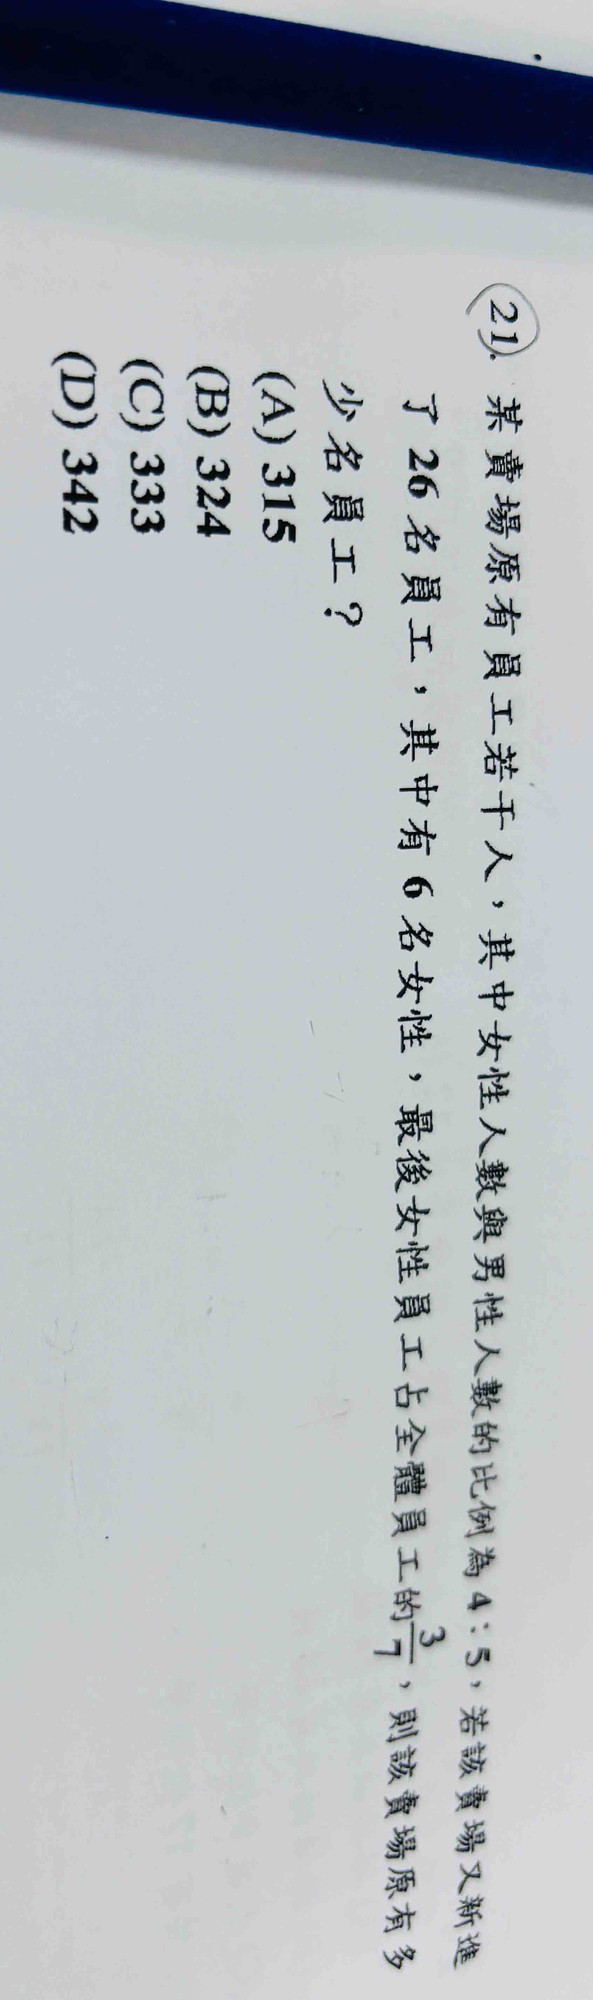 21. 某賣場原有員工若干人，其中女性人數與男性人數的比例為4：5，若該賣場又新進
了26名員工，其中有6名女性，最後女性員工占全體員工的3/7，則該賣場原有多
少名員工？
(A) 315
(B) 324
(C) 333
(D) 342